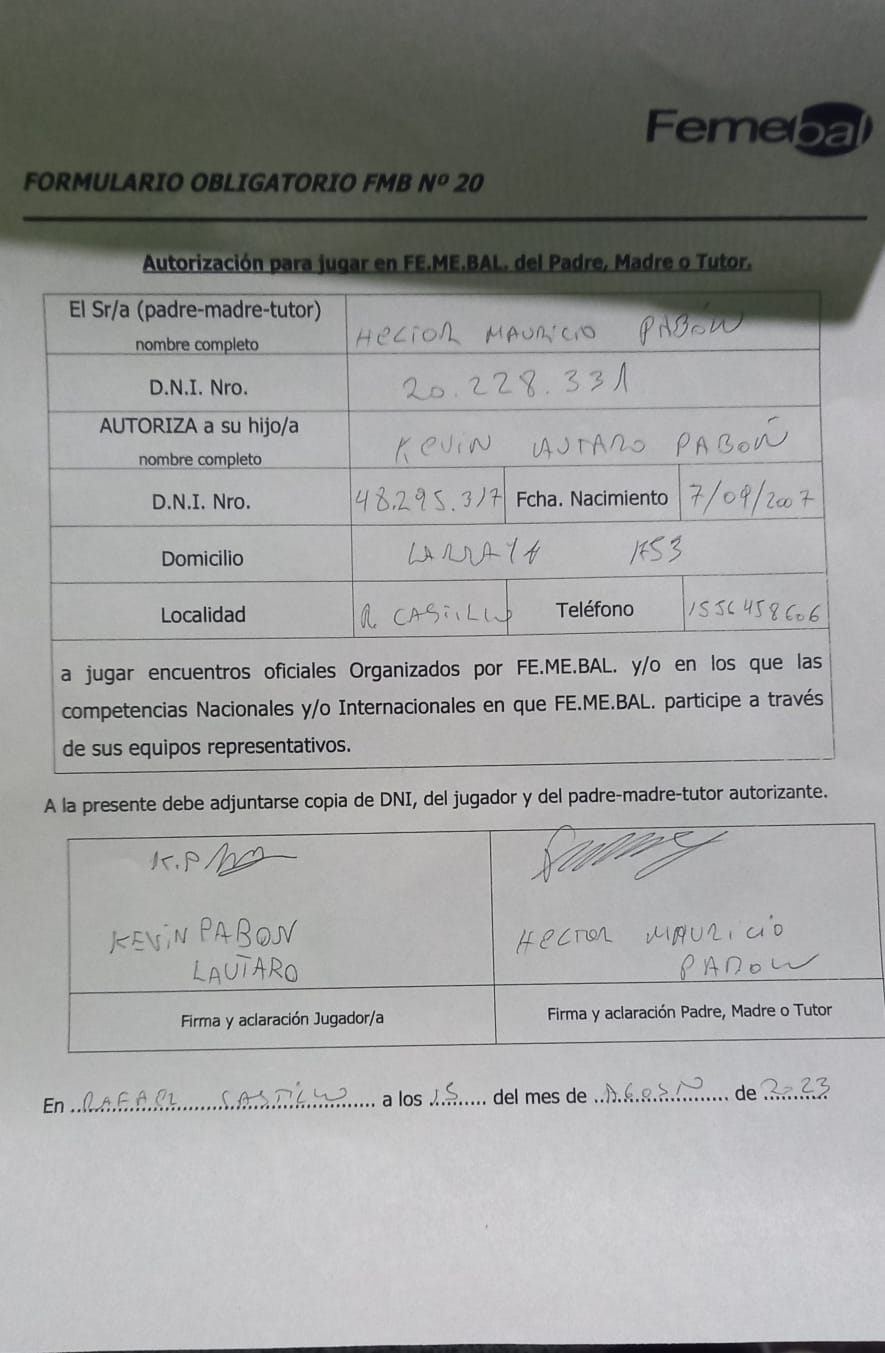 Femebal
FORMULARIO OBLIGATORIO FMB Nº 20
Autorización para jugar en FE.ME.BAL. del Padre, Madre o Tutor.
El Sr/a (padre-madre-tutor)
nombre completo
HECTOR MAURICIO PABÓN
D.N.I. Nro.
20.228.331
AUTORIZA a su hijo/a
nombre completo
KEVIN LAUTARO PABON
D.N.I. Nro.
48.295.317
Fcha. Nacimiento
7/09/2007
Domicilio
LARRAYA 1753
Localidad
R. CASTILLO
Teléfono
1556458606
a jugar encuentros oficiales Organizados por FE.ME.BAL. y/o en los que las
competencias Nacionales y/o Internacionales en que FE.ME.BAL. participe a través
de sus equipos representativos.
A la presente debe adjuntarse copia de DNI, del jugador y del padre-madre-tutor autorizante.
K.P
KEVIN PABON
LAUTARO
Firma y aclaración Jugador/a
HECTOR MAURICIO
PABON
Firma y aclaración Padre, Madre o Tutor
En RAFAEL CASTILLO a los 15 del mes de AGOSTO de 2023